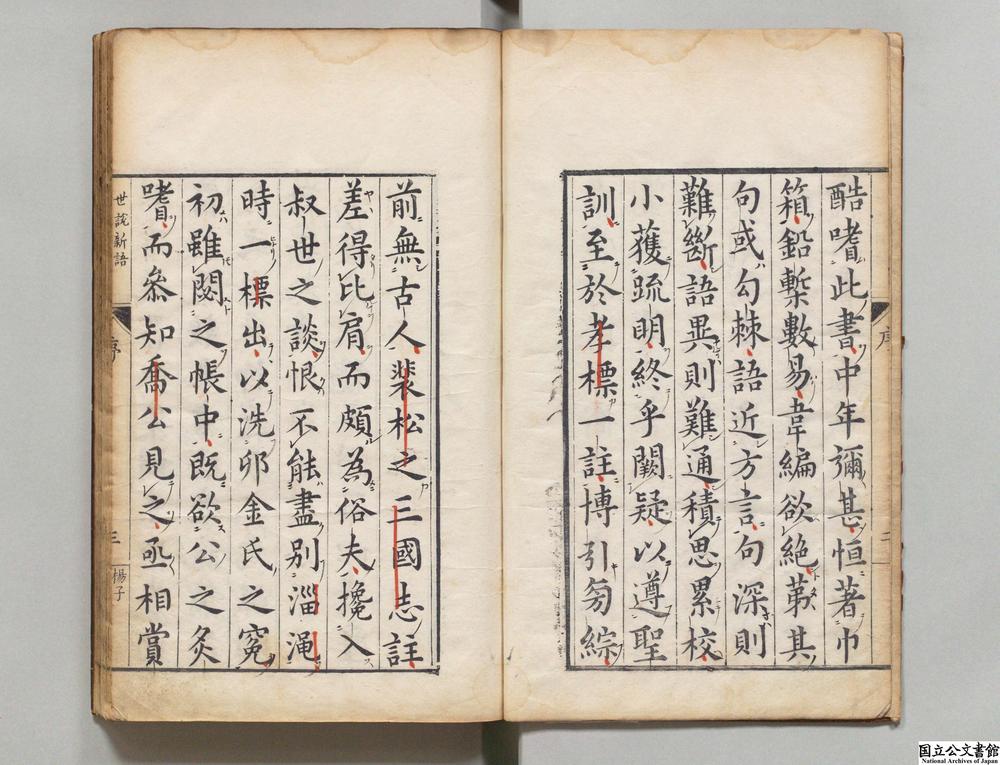 酷嗜此書中年彌甚恒著巾
箱鉛槧數易韋編欲絶第其
句或勾棘語近方言句深則
難斷語異則難通積思累校
小獲疏明終乎闕疑以遵聖
訓至於孝標一註博引旁綜
前無古人裴松之三國志註
差得比肩而頗為俗夫攙入
叔世之談恨不能盡別淄澠
時一標出以洗卯金氏之冤
初雖閟之帳中既欲公之炙
嗜而叅知喬公見之亟相賞
世說新語
序
三
楊子
国立公文書館
National Archives of Japan